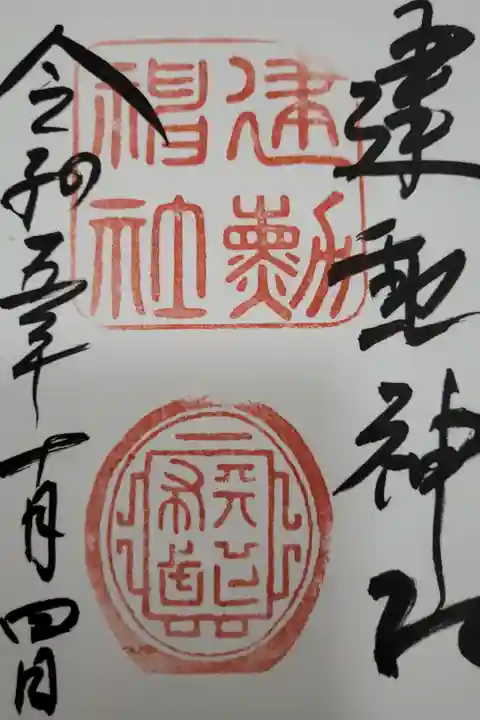 建勲神社
建勲
神社
令和五年十月四日